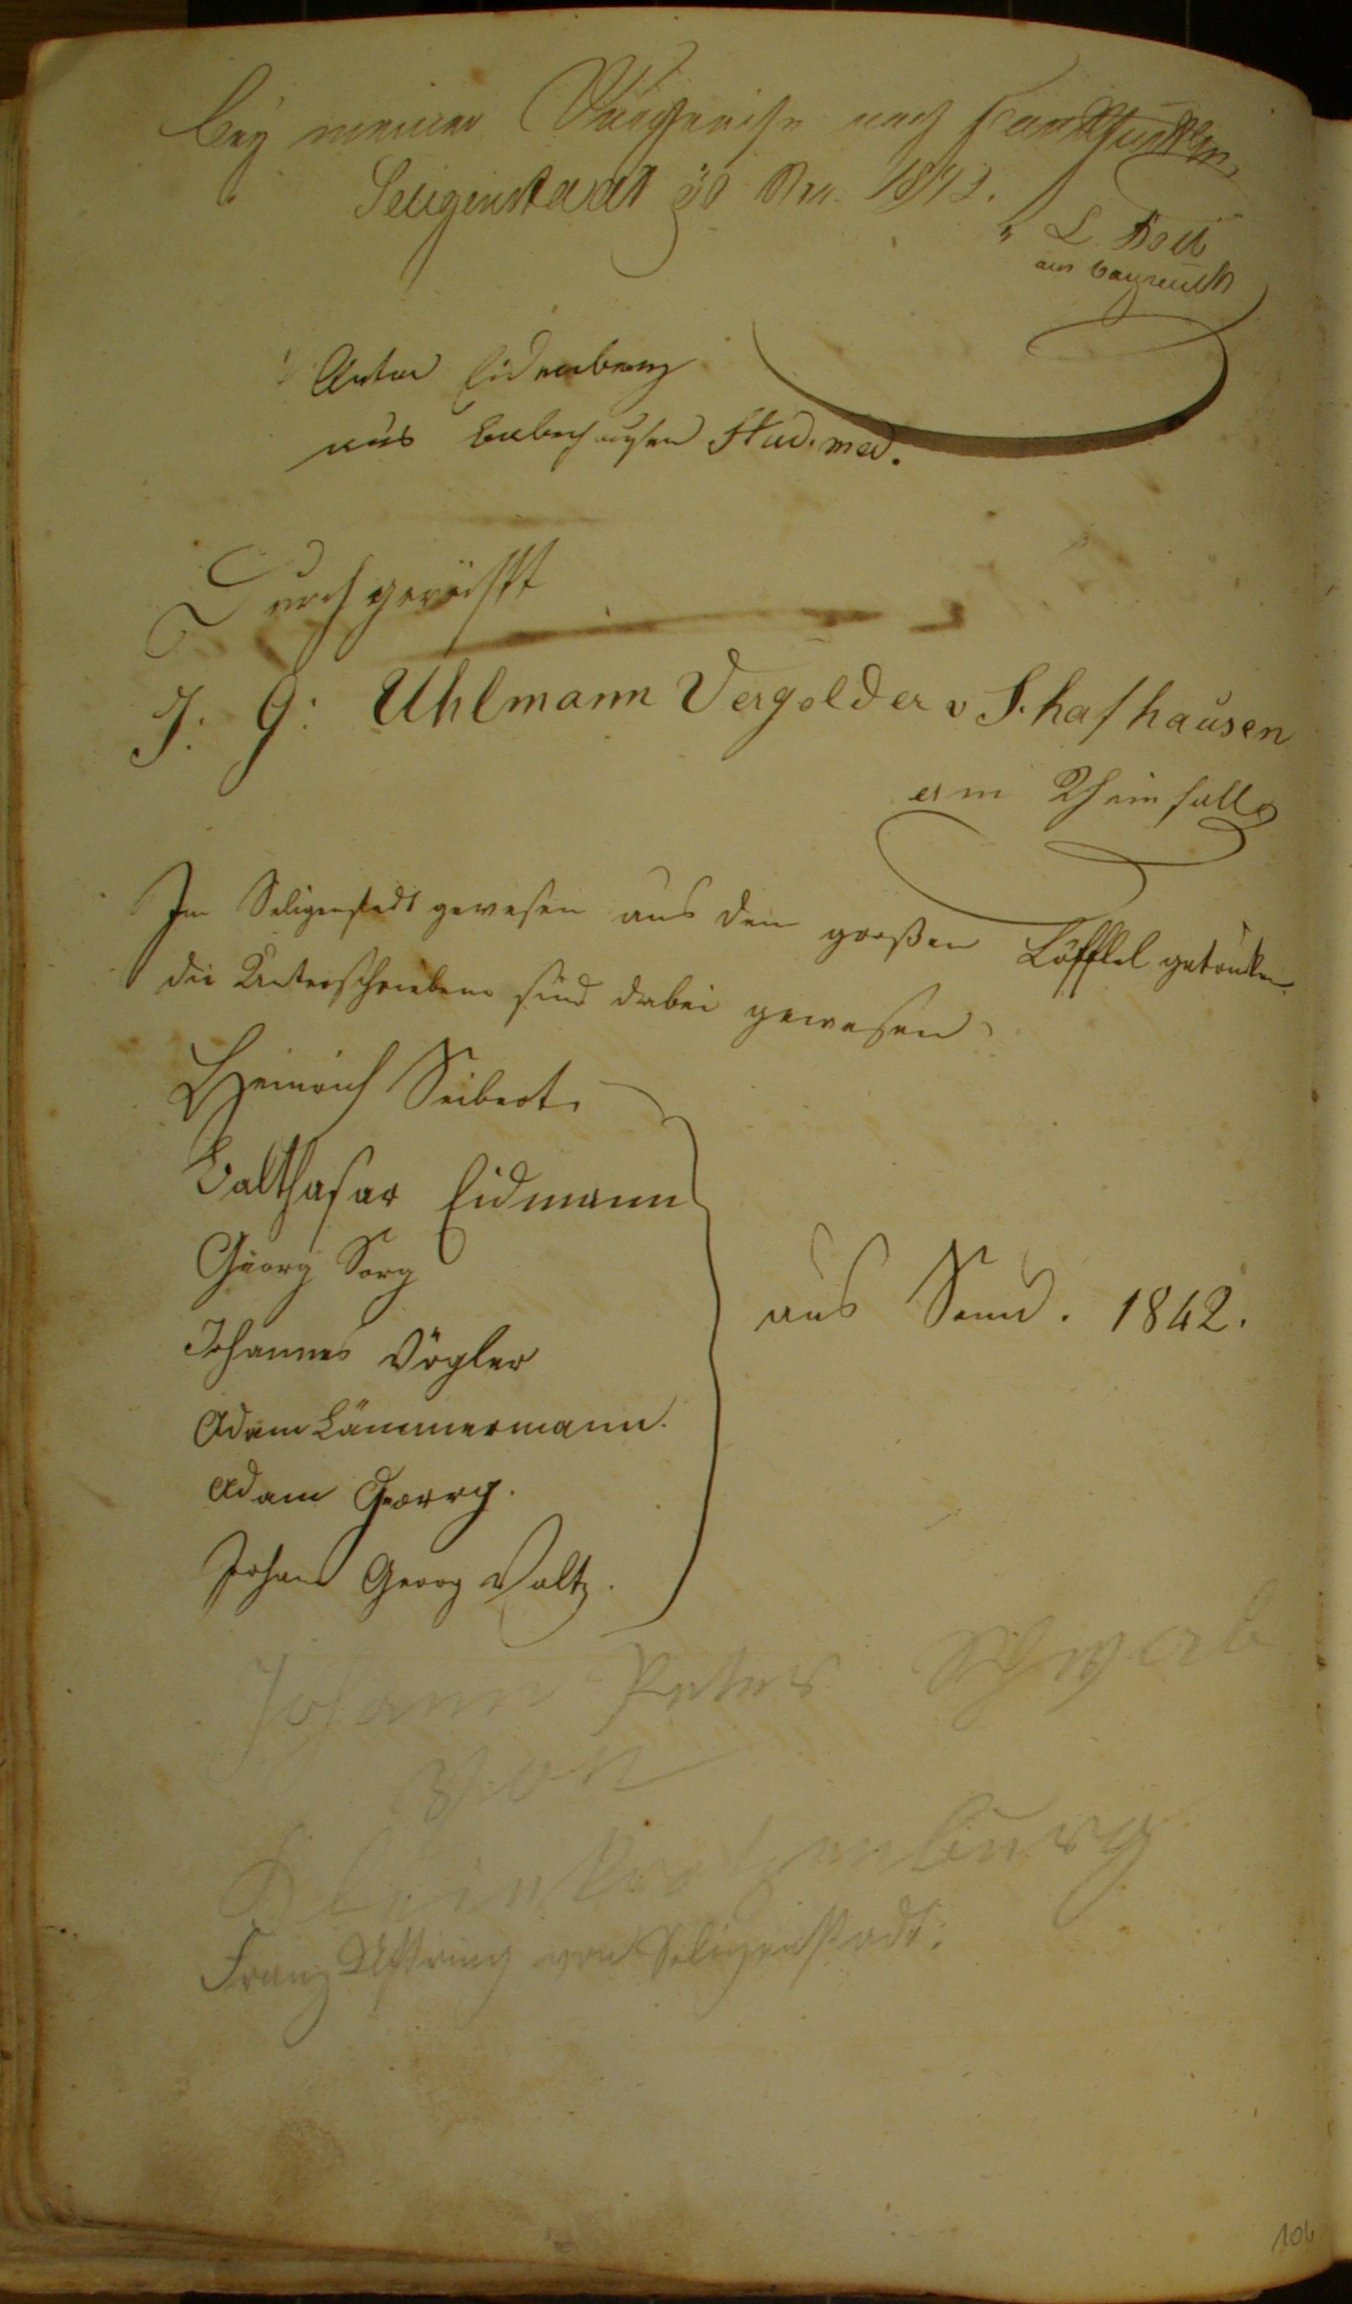 Bey meiner Durchreise nach Frankfurth
Seligenstadt 30 1842.
L.
aus Bayreuth
Anton
aus Babenhausen Stud. med.
Durch gereißt
J: G: Uhlmann Vergolder v Schafhausen
am Rheinfall
In Seligenstadt gewesen aus dem großen Löffel getrunken.
die Unterschriebene sind dabei gewesen
Heinrich Seibert.
Balthasar Eidmann
Georg Sorg
Johannes Vögler
Adam Lämmermann.
Adam Georg.
Johann Georg Valtz.
aus 1842.
Johann Peter Schwab
von
Kleinkrotzenburg
Franz von Seligenstadt.
106